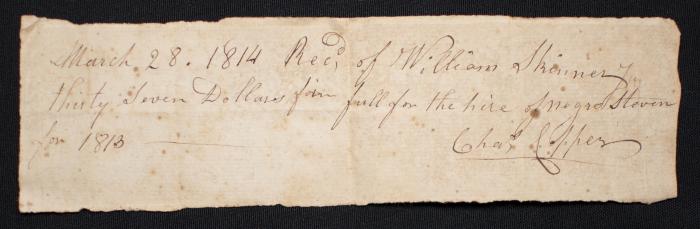 March 28. 1814 Recd. of William Skinner
thirty Seven Dollars in full for the hire of negro Steven
for 1813
Chas.